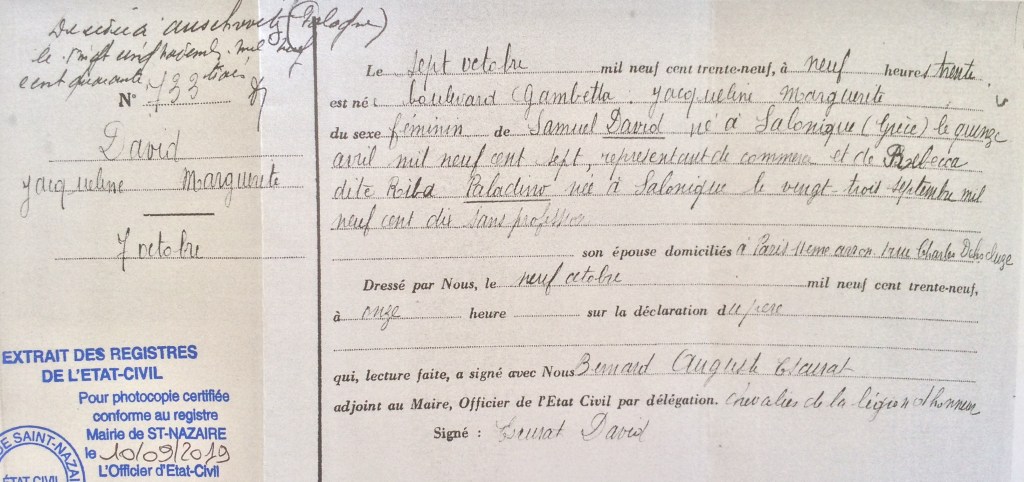 Decédée à Auschwitz (Pologne)
le vingt un novembre mil neuf
cent quarante trois
N° 733
David
Jacqueline Marguerite
7 octobre
EXTRAIT DES REGISTRES
DE L'ETAT-CIVIL
Pour photocopie certifiée
conforme au registre
Mairie de ST-NAZAIRE
le 10/09/2019
L'Officier d'Etat-Civil
DE SAINT-NAZAI
ÉTAT CIVIL
Le sept octobre mil neuf cent trente-neuf, à neuf heures trente
est né : boulevard Gambetta : Jacqueline Marguerite
du sexe féminin de Samuel David né à Salonique (Grèce) le quinze
avril mil neuf cent sept, représentant de commerce et de Rebecca
dite Paladino née à Salonique le vingt-trois septembre mil
neuf cent dix sans profession
son épouse domiciliés à Paris 11eme arron. rue Charles Delescluze
Dressé par Nous, le neuf octobre mil neuf cent trente-neuf,
à onze heure sur la déclaration du père
qui, lecture faite, a signé avec Nous Bernard Auguste
adjoint au Maire, Officier de l'Etat Civil par délégation. chevalier de la légion d'honneur
Signé : David